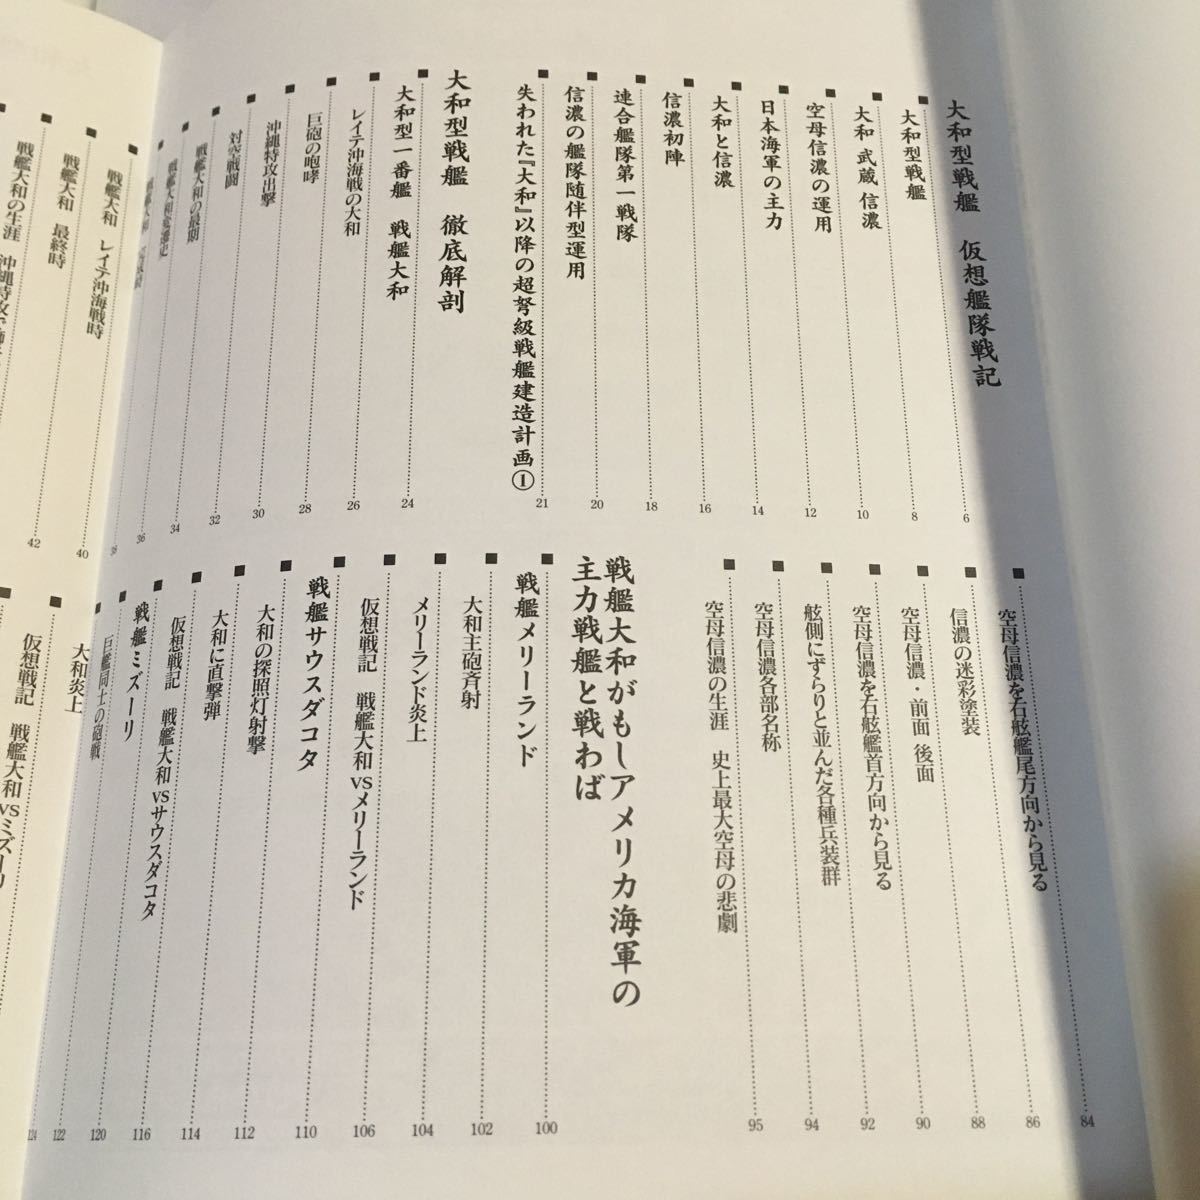 大和型戦艦 仮想艦隊戦記
大和型戦艦 6
大和 武蔵 信濃 8
空母信濃の運用 10
日本海軍の主力 12
大和と信濃 14
信濃初陣 16
連合艦隊第一戦隊 18
信濃の艦隊随伴型運用 20
失われた『大和』以降の超弩級戦艦建造計画① 21
大和型戦艦 徹底解剖
大和型一番艦 戦艦大和 24
レイテ沖海戦の大和 26
巨砲の咆哮 28
沖縄特攻出撃 30
対空戦闘 32
戦艦大和の最期 34
戦艦大和変遷史 36
戦艦大和 完成時 38
戦艦大和 レイテ沖海戦時 40
戦艦大和 最終時 42
戦艦大和の生涯 沖縄特攻で
空母信濃を右舷艦尾方向から見る 84
信濃の迷彩塗装 86
空母信濃・前面 後面 88
空母信濃を右舷艦首方向から見る 90
舷側にずらりと並んだ各種兵装群 92
空母信濃各部名称 94
空母信濃の生涯 史上最大空母の悲劇 95
戦艦大和がもしアメリカ海軍の
主力戦艦と戦わば
戦艦メリーランド 100
大和主砲斉射 102
メリーランド炎上 104
仮想戦記 戦艦大和vsメリーランド 106
戦艦サウスダコタ 110
大和の探照灯射撃 112
大和に直撃弾 114
仮想戦記 戦艦大和vsサウスダコタ 116
戦艦ミズーリ 120
巨艦同士の砲戦 122
大和炎上 124
仮想戦記 戦艦大和vsミズーリ